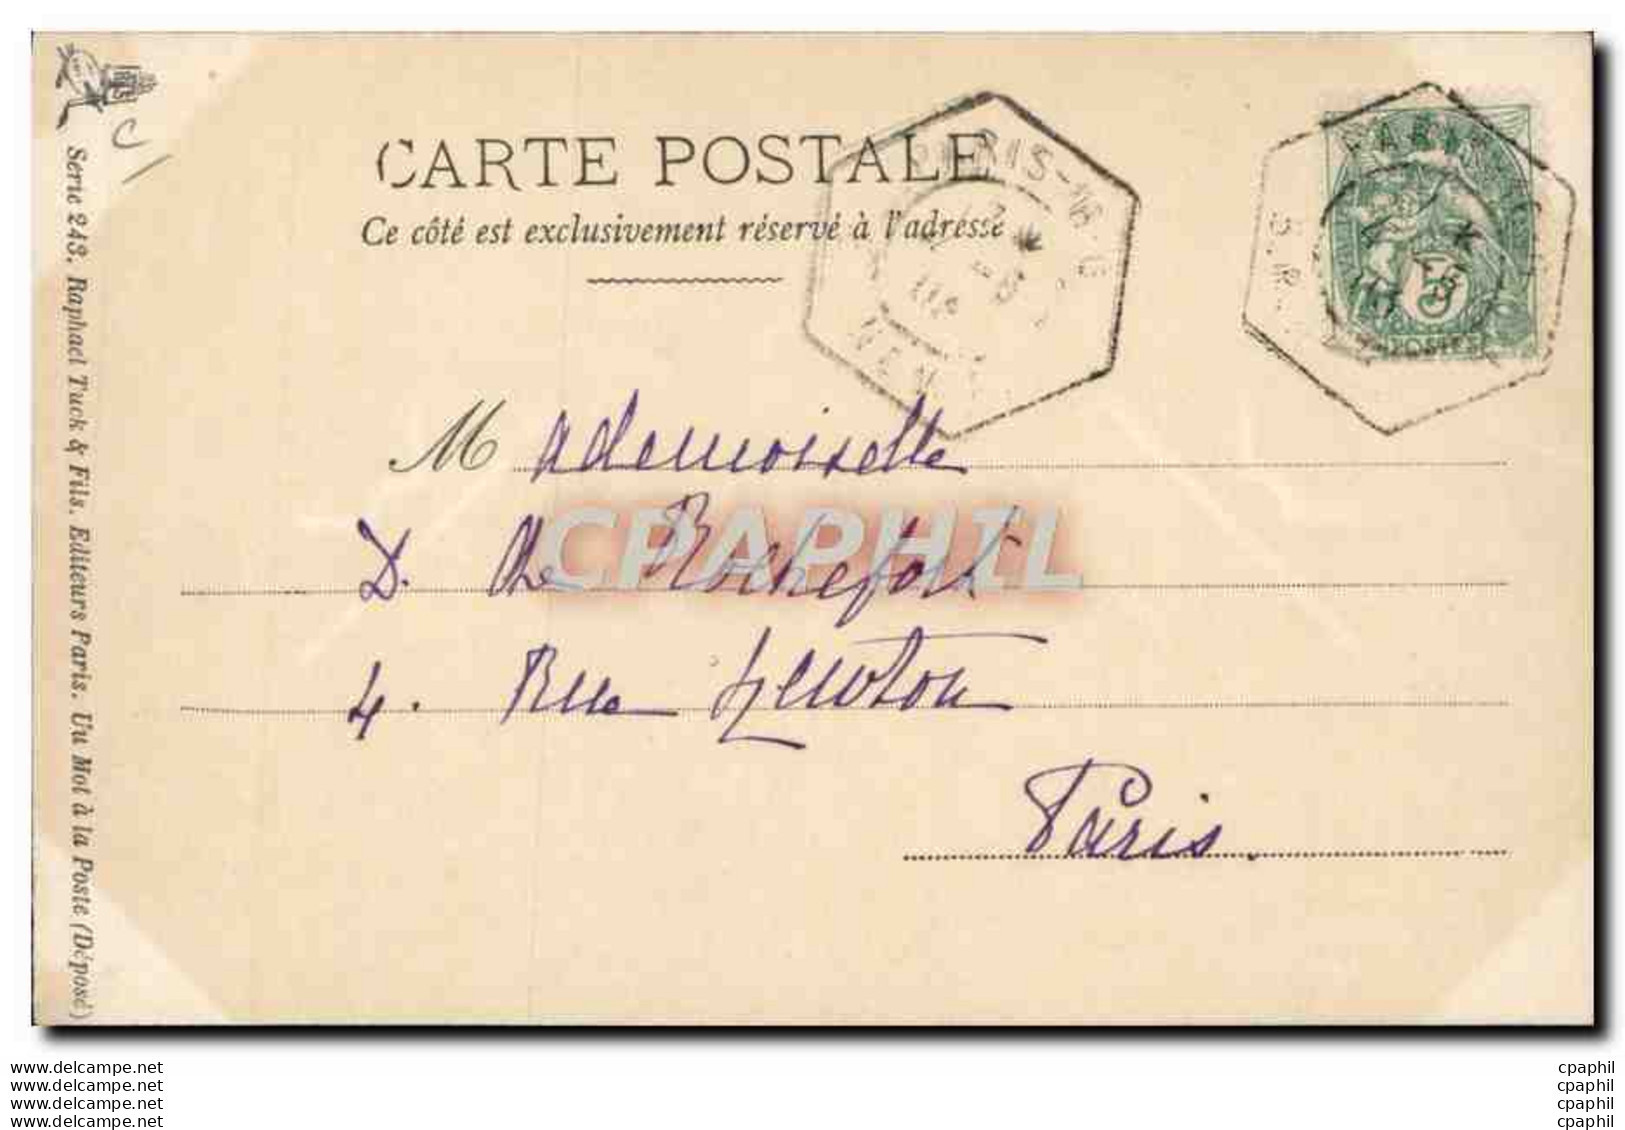 CARTE POSTALE
Ce côté est exclusivement réservé à l'adresse
PARIS-16
PARIS
5
POSTES
C
Mademoiselle
D. de Rochefort
4. Rue Newton
Paris.
CPAPHIL
Serie 243. Raphael Tuck & Fils. Editeurs Paris. Un Mot à la Poste (Déposé)
www.delcampe.net cpaphil
www.delcampe.net cpaphil
www.delcampe.net cpaphil
www.delcampe.net cpaphil